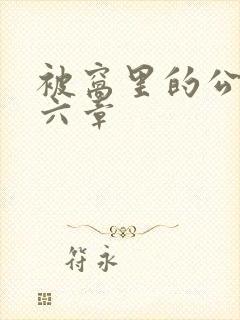 被窝里的公
六章
符永